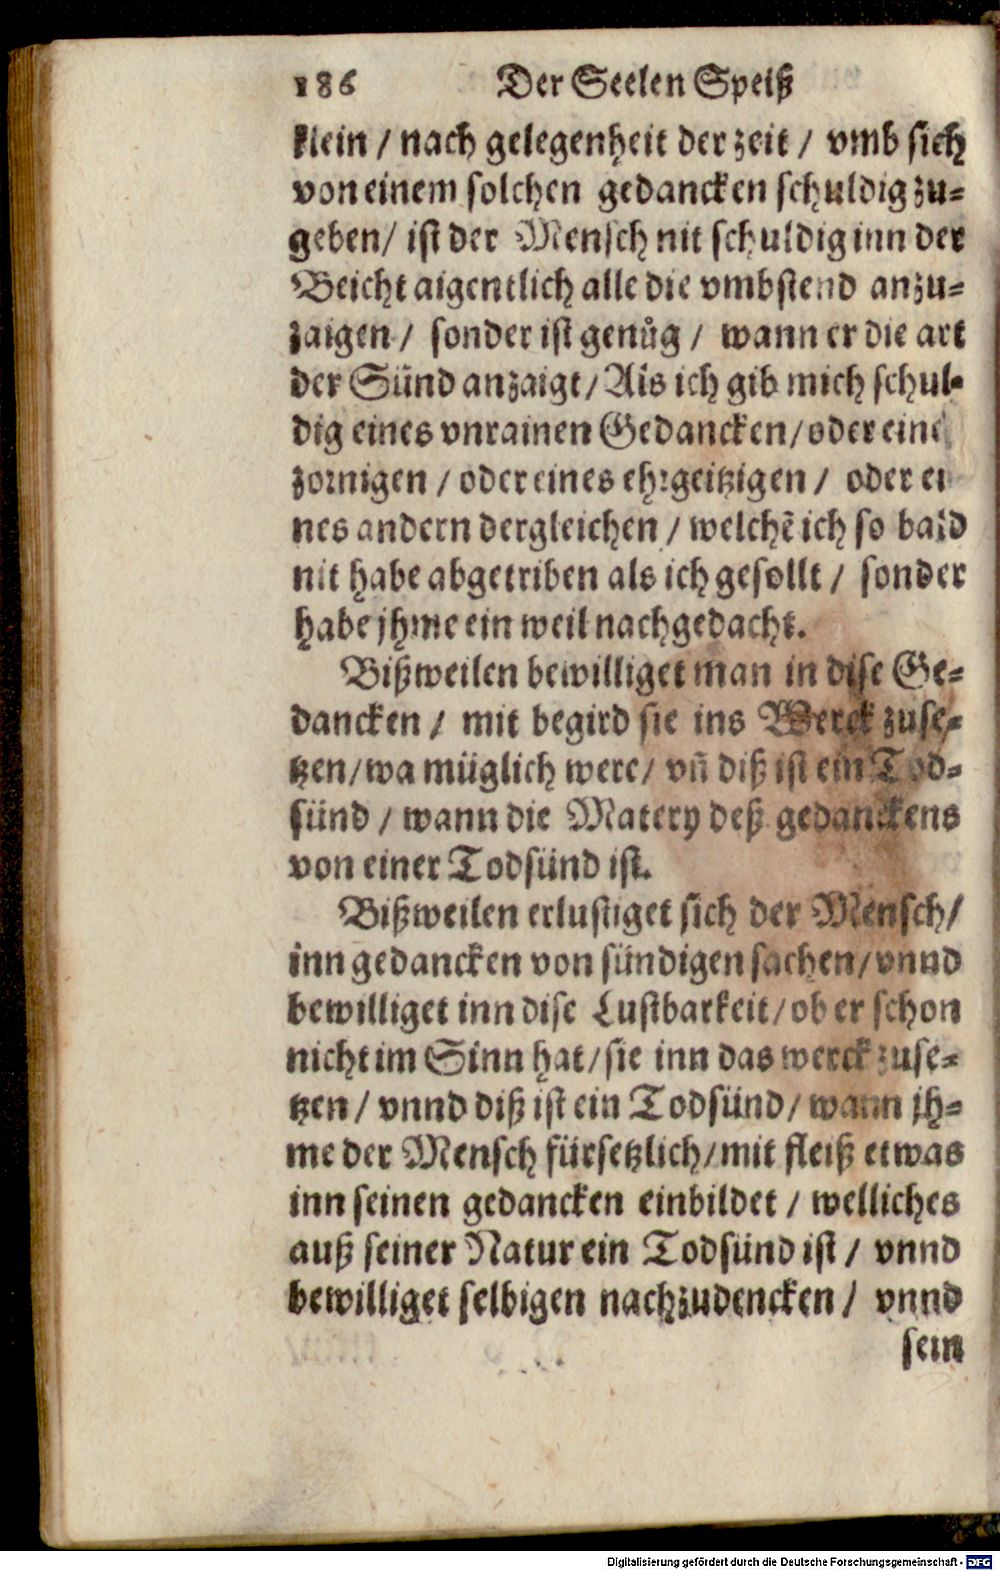 186 Der Seelen Speiß
klein / nach gelegenheit der zeit / vmb sich
von einem solchen gedancken schuldig zu-
geben / ist der Mensch nit schuldig inn der
Beicht aigentlich alle die vmbstend anzu-
zaigen / sonder ist genůg / wann er die art
der Sünd anzaigt / Als ich gib mich schul-
dig eines vnrainen Gedancken / oder eines
zornigen / oder eines ehrgeitzigen / oder ei
nes andern dergleichen / welchẽ ich so bald
nit habe abgetriben als ich gesollt / sonder
habe jhme ein weil nachgedacht.
Bißweilen bewilliget man in dise Ge-
dancken / mit begird sie ins Werck zuse-
tzen / wa müglich were / vñ diß ist ein Tod-
sünd / wann die Matery deß gedanckens
von einer Todsünd ist.
Bißweilen erlustiget sich der Mensch /
inn gedancken von sündigen sachen / vnnd
bewilliget inn dise Lustbarkeit / ob er schon
nicht im Sinn hat / sie inn das werck zuse-
tzen / vnnd diß ist ein Todsünd / wann jh-
me der Mensch fürsetzlich / mit fleiß etwas
inn seinen gedancken einbildet / welliches
auß seiner Natur ein Todsünd ist / vnnd
bewilliget selbigen nachzudencken / vnnd
sein
Digitalisierung gefördert durch die Deutsche Forschungsgemeinschaft - DFG